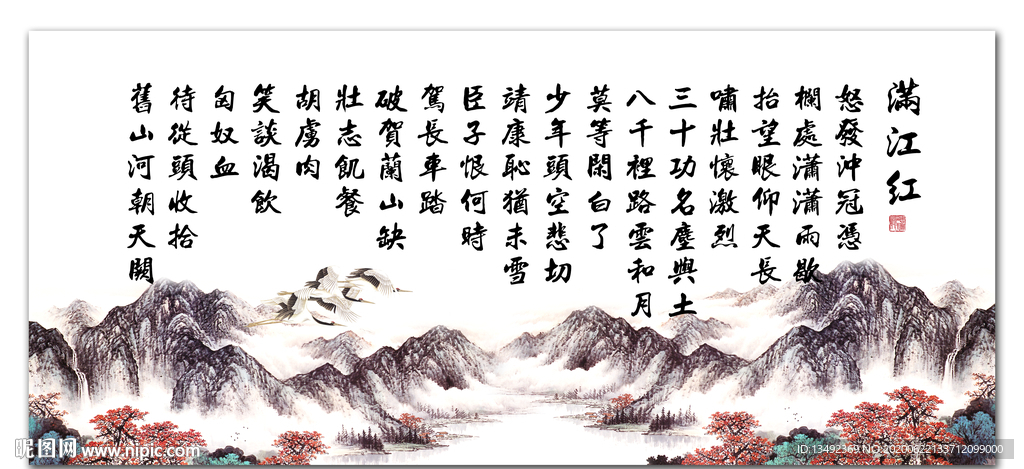 满江红
怒發沖冠憑
欄處瀟瀟雨歇
抬望眼仰天長
嘯壯懷激烈
三十功名塵與土
八千裡路雲和月
莫等閑白了
少年頭空悲切
靖康恥猶未雪
臣子恨何時
駕長車踏
破賀蘭山缺
壯志飢餐
胡虜肉
笑談渴飲
匈奴血
待從頭收拾
舊山河朝天闕
昵图网 www.nipic.com
ID:13492369 NO:20200622133712099000